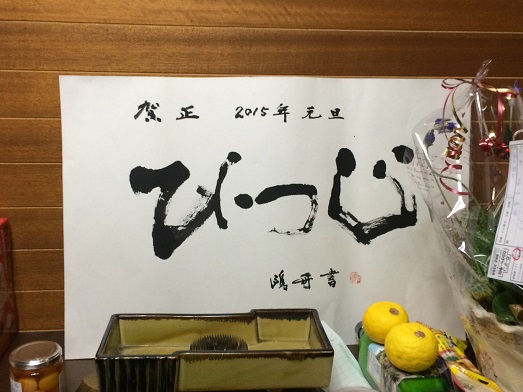 賀正 2015年 元旦
ひつじ
鴻舟書